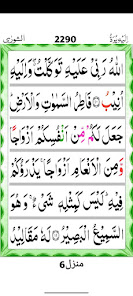 اِلَيْهِ يُرَدُّ 2290 الشورٰى
اللّٰهُ رَبِّيْ عَلَيْهِ تَوَكَّلْتُ وَاِلَيْهِ
اُنِيْبُ ۝ فَاطِرُ السَّمٰوٰتِ وَالْاَرْضِ
جَعَلَ لَكُمْ مِّنْ اَنْفُسِكُمْ اَزْوَاجًا
وَّمِنَ الْاَنْعَامِ اَزْوَاجًا يَذْرَؤُكُمْ
فِيْهِ لَيْسَ كَمِثْلِهٖ شَيْءٌ وَهُوَ
السَّمِيْعُ الْبَصِيْرُ ۝ لَهٗ مَقَالِيْدُ
منزل 6